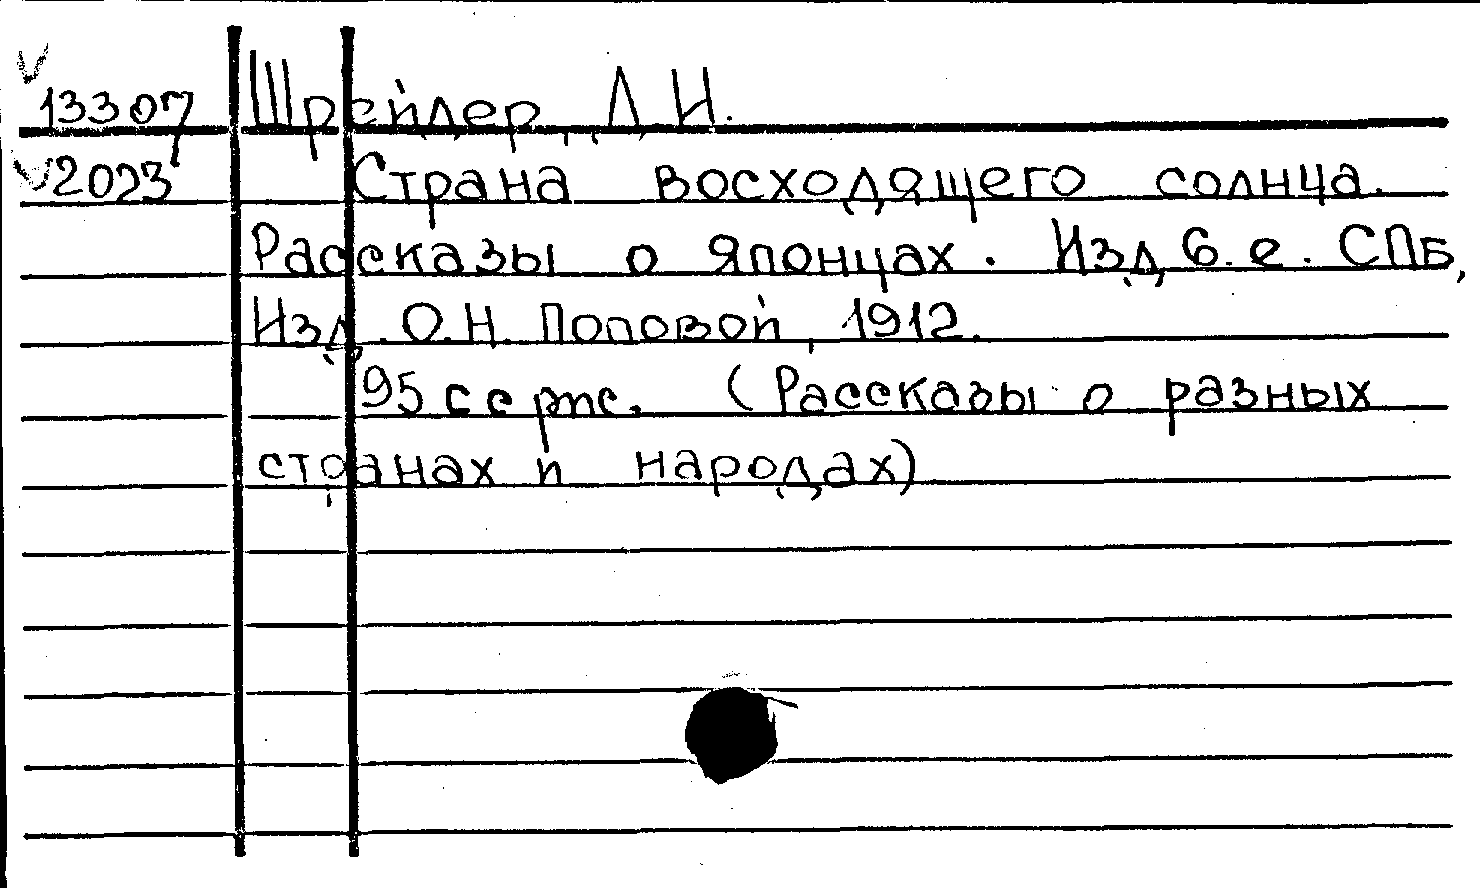 13307 Шрейдер, Д.И.
2023 Страна восходящего солнца.
Рассказы о Японцах. Изд 6.е. СПБ,
Изд. О.Н. Поповой, 1912.
95 с с рис. (Рассказы о разных
странах и народах)